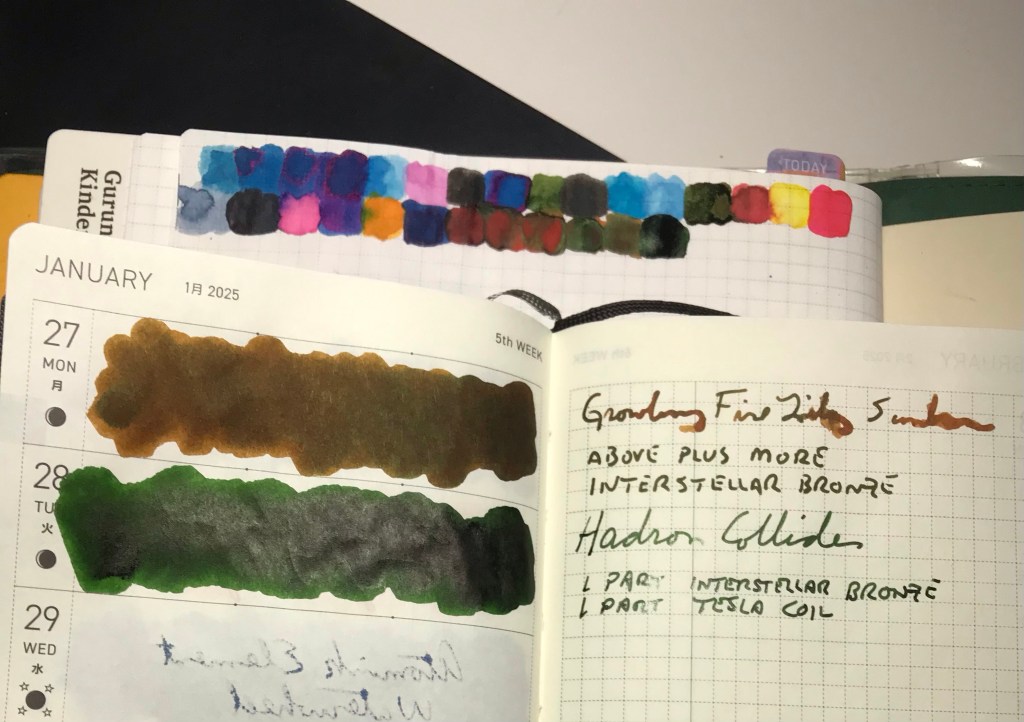 TODAY
Gurun
Kinde
JANUARY 1月 2025
5th WEEK
27
MON
月
28
TU
火
29
WED
水
Fire Lily
ABOVE PLUS MORE
INTERSTELLAR BRONZE
Hadron Collider
1 PART INTERSTELLAR BRONZE
1 PART TESLA COIL
Atomic Element